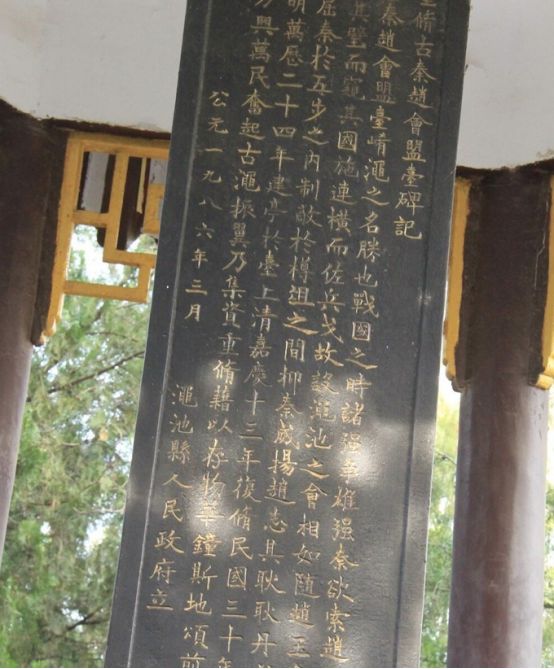 重脩古秦趙會盟臺碑記
秦趙會盟臺崤澠之名勝也戰國之時諸强爭雄强秦欲索趙
其璧而窺其國施連横而佐兵戈故設澠池之會相如随趙王
屈秦於五步之内制敵於樽俎之間抑秦威揚趙志其耿耿丹
明萬厯二十四年建亭於臺上清嘉慶十三年復脩民國三十年
方興萬民奮起古澠振翼乃集資重脩藉以存物華鐘斯地頌前
公元一九八六年三月
澠池縣人民政府立